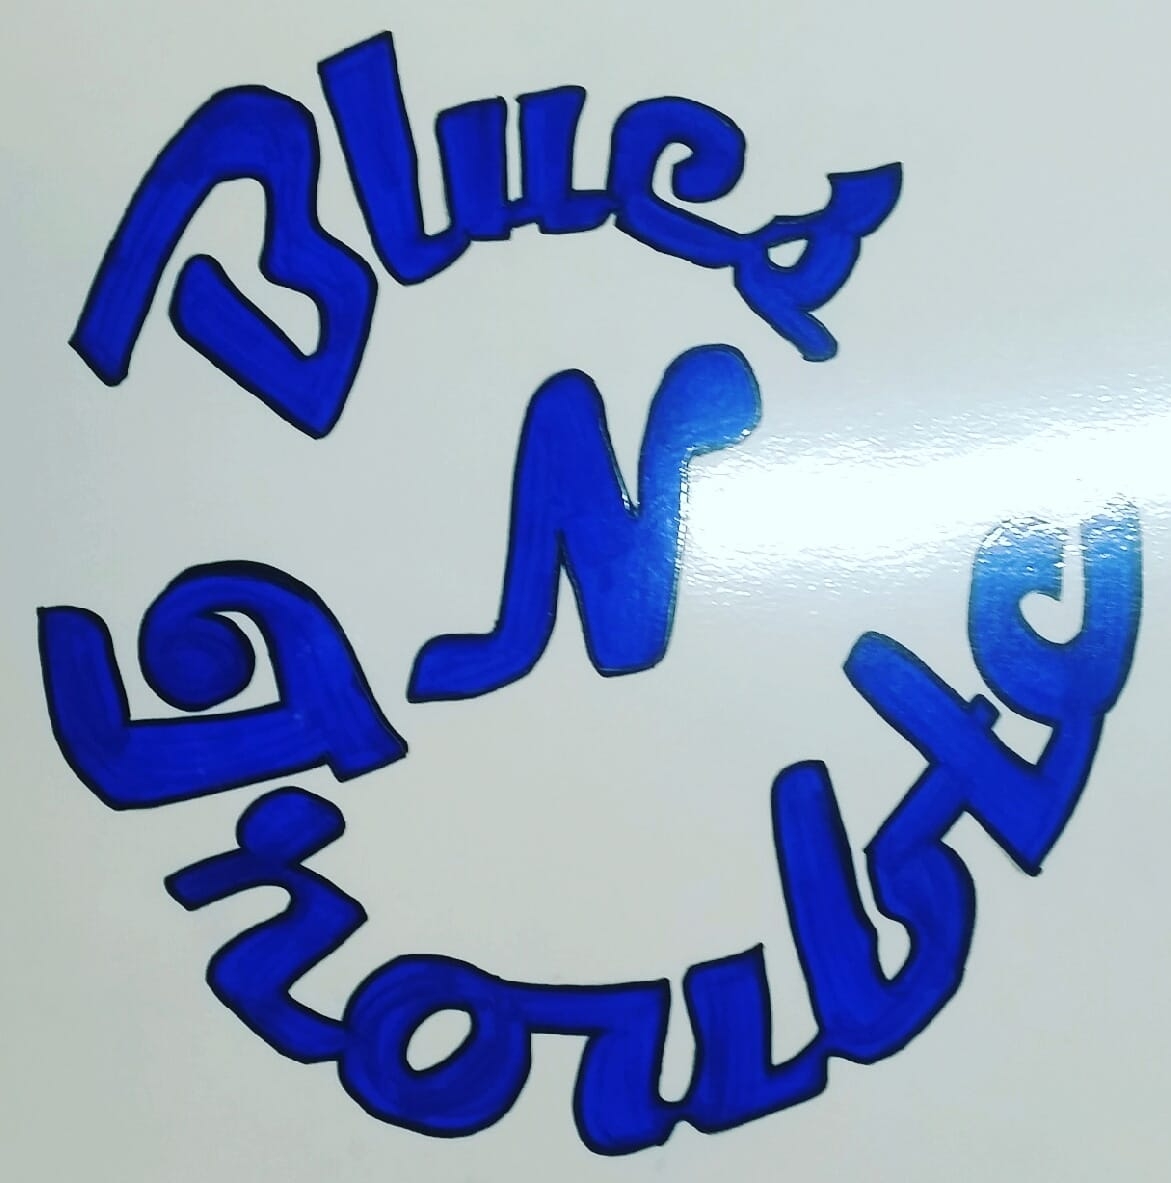 Blues
N
Trouble